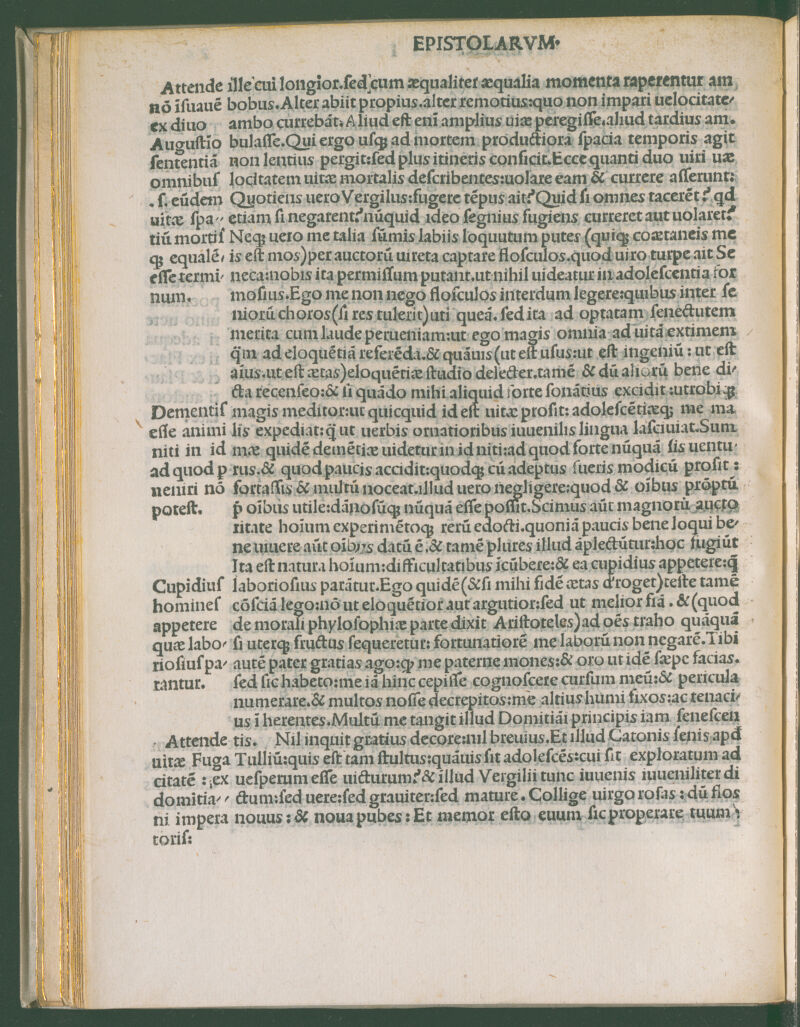 EPISTOLARVM•
Attende ille cui longior.sed cum æqualiter æqualia momenta raperentur am
nō īsuauē bobus.Alter abiit propius.alter remotius:quo non impari uelocitate/
ex diuo ambo currebāt:Aliud est enī amplius uiæ peregisse.aliud tardius am.
Augustīo bulasse.Qui ergo usq; ad mortem productiora spacia temporis agit
sententiā non lentius pergit:sed plus itineris conficit.Ecce quanti duo uiri uæ
omnibus locitatem uitæ mortalis describentes:uolare eam & currere asserunt:
.s. eūdem Quotiens uero Vergilus:fugere tēpus ait?Quid si omnes tacerēt? qd
uitæ spa// etiam si negarent?nūquid ideo segnius fugiens curreret aut uolaret?
tiū mortis Neq; uero me talia sūmis labiis loquutum putes (quiq; coætaneis me
q; equalē/ is est mos)per auctorū uireta captare flosculos.quod uiro turpe ait Se
esse termi/ neca:nobis ita permissum putant.ut nihil uideatur in adolescentia for
num. mosius.Ego me non nego flosculos interdum legere:quibus inter se
niorū choros(si res tulerit)uti queā.sed ita ad optatam senectutem
merita cum laude perueniam:ut ego magis omnia ad uitā extimem
q̄m ad eloquētiā referēda.& quāuis(ut est usus:ut est ingeniū: ut est
aius.ut est ætas)eloquētiæ studio delecter.tamē & dū aliorū bene di/
cta recenseo:& si quādo mihi aliquid forte sonātius excidit:utrobiq;
Dementis magis meditor:ut quicquid id est uitæ profit: adolescētiæq; me ma
esse animi lis expediat:q̄ ut uerbis ornatioribus iuuenilis lingua lasciuiat.Sum
niti in id mæ quidē demētiæ uidetur in id niti:ad quod forte nūquā sis uentu/
ad quod p rus.& quod paucis accidit:quodq; cū adeptus fueris modicū profit:
ueniri nō fortassis & multū noceat.illud uero negligere:quod & oībus prōptū
potest. p̄ oībus utile:dānosūq; nūquā esse possit.Scimus aūt magnorū aucto
ritate hoīum experimētoq; rerū edocti.quoniā paucis bene loqui be/
ne uiuere aūt oībus datū ē.& tamē plures illud āplectūtur:hoc fugiūt
Ita est natura hoīum:difficultatibus icūbere:& ea cupidius appetere:q̄
Cupidius laboriosius parātur.Ego quidē(&si mihi fidē ætas droget)teste tamē
homines cōsciā lego:nō ut eloquētior aut argutior:sed ut melior fiā.&(quod
appetere de morali phylosophiæ parte dixit Aristoteles)ad oēs traho quāquā
quæ labo/ si uterq; fructus sequeretur: fortunatiorē me laborū non negarē.Tibi
riosius pa/ autē pater gratias ago:q̄ me paterne mones:& oro ut idē sæpe facias.
rantur. sed sic habeto:me iā hinc cepisse cognoscere cursum meū:& pericula
numerare.& multos nosse decrepitos:me altius humi fixos:ac tenaci/
us ī herentes.Multū me tangit illud Domitiāi principis iam senescen
Attende tis. Nil inquit gratius decore:nil breuius.Et illud Catonis senis apd
uitæ Fuga Tulliū:quis est tam stultus:quāuis sit adolescēs:cui sit exploratum ad
citatē :ex uesperum esse uicturum?& illud Vergilii tunc iuuenis iuueniliter di
domitia// ctum:sed uere:sed grauiter:sed mature.Collige uirgo rosas:dū flos
ni impera nouus:& noua pubes:Et memor esto euum sic properare tuum
toris: